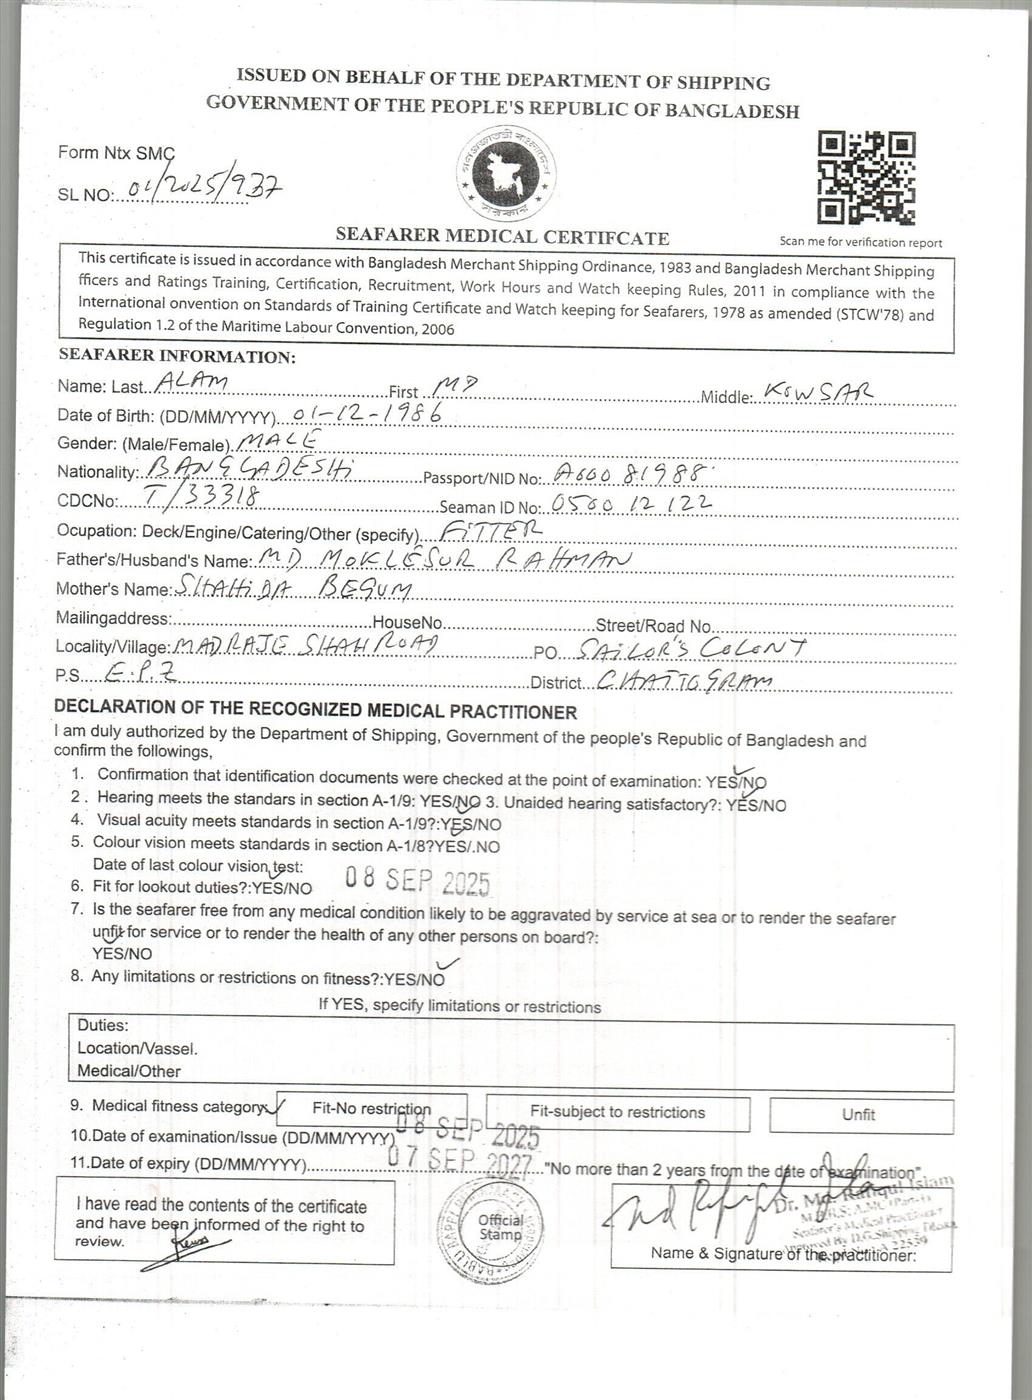 ISSUED ON BEHALF OF THE DEPARTMENT OF SHIPPING
GOVERNMENT OF THE PEOPLE'S REPUBLIC OF BANGLADESH
Form Ntx SMC
SL NO: 01/2025/937
গণপ্রজাতন্ত্রী বাংলাদেশ
সরকার
SEAFARER MEDICAL CERTIFCATE
Scan me for verification report
This certificate is issued in accordance with Bangladesh Merchant Shipping Ordinance, 1983 and Bangladesh Merchant Shipping
fficers and Ratings Training, Certification, Recruitment, Work Hours and Watch keeping Rules, 2011 in compliance with the
International onvention on Standards of Training Certificate and Watch keeping for Seafarers, 1978 as amended (STCW'78) and
Regulation 1.2 of the Maritime Labour Convention, 2006
SEAFARER INFORMATION:
Name: Last. ALAM First MD Middle: KOWSAR
Date of Birth: (DD/MM/YYYY) 01-12-1986
Gender: (Male/Female). MALE
Nationality: BANGLADESHi Passport/NID No: A00081988
CDCNo: T/33318 Seaman ID No: 0500 12 122
Ocupation: Deck/Engine/Catering/Other (specify) FiTTER
Father's/Husband's Name: MD MOKLESUR RAHMAN
Mother's Name: SHAHiDA BEGUM
Mailingaddress: HouseNo Street/Road No
Locality/Village: MADRAJE SHAH ROAD PO SAiLOR'S COLONY
P.S. E.P.Z District CHATTOGRAM
DECLARATION OF THE RECOGNIZED MEDICAL PRACTITIONER
I am duly authorized by the Department of Shipping, Government of the people's Republic of Bangladesh and
confirm the followings,
1. Confirmation that identification documents were checked at the point of examination: YES/NO
2 . Hearing meets the standars in section A-1/9: YES/NO 3. Unaided hearing satisfactory?: YES/NO
4. Visual acuity meets standards in section A-1/9?:YES/NO
5. Colour vision meets standards in section A-1/8?YES/.NO
Date of last colour vision test: 08 SEP 2025
6. Fit for lookout duties?:YES/NO
7. Is the seafarer free from any medical condition likely to be aggravated by service at sea or to render the seafarer
unfit for service or to render the health of any other persons on board?:
YES/NO
8. Any limitations or restrictions on fitness?:YES/NO
If YES, specify limitations or restrictions
Duties:
Location/Vassel.
Medical/Other
9. Medical fitness category Fit-No restriction Fit-subject to restrictions Unfit
10.Date of examination/Issue (DD/MM/YYYY) 08 SEP 2025
11.Date of expiry (DD/MM/YYYY) 07 SEP 2027 "No more than 2 years from the date of examination".
I have read the contents of the certificate
and have been informed of the right to
review.
Official
Stamp
Dr. Md. Rafiqul Islam
Name & Signature of the practitioner: